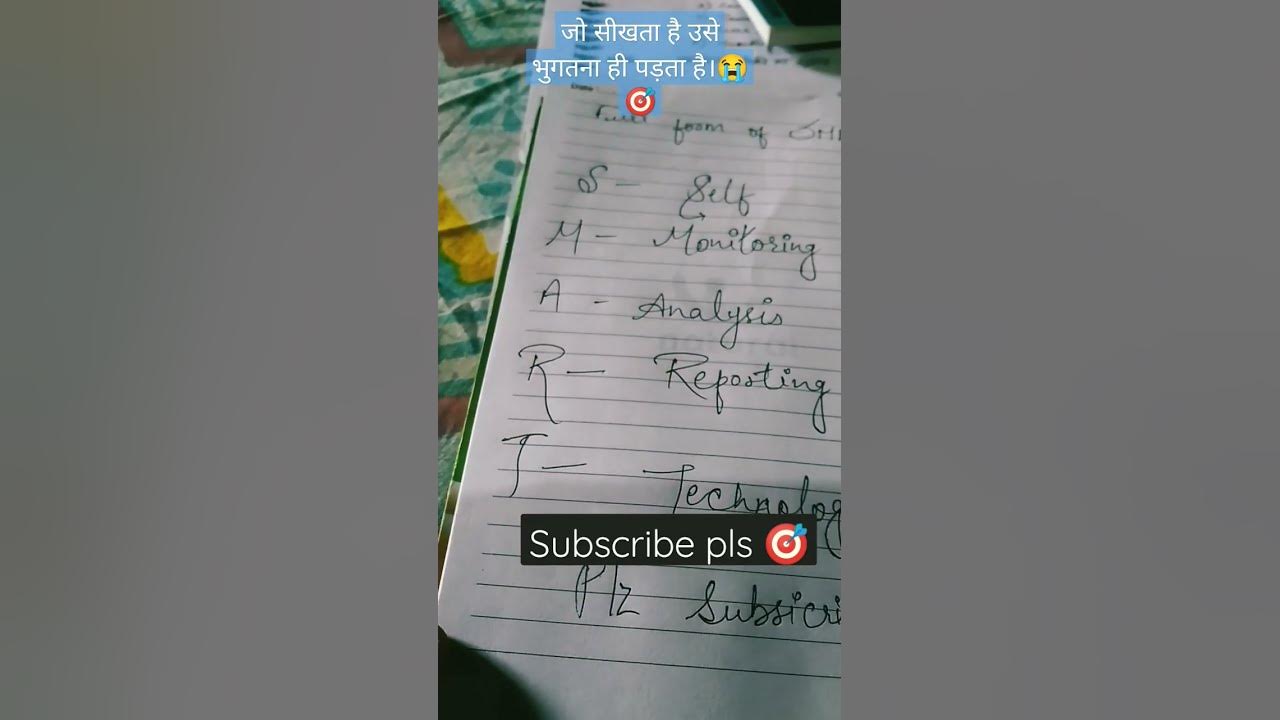 जो सीखता है उसे
भुगतना ही पड़ता है।😭
🎯
Full form of
S - Self
M - Monitoring
A - Analysis
R - Reporting
T - Technolog
Subscribe pls 🎯
Plz Subsicri